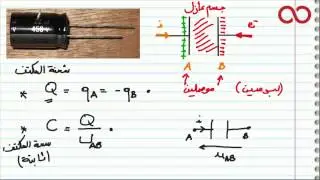 450V
جسم عازل
i
e⁻
A B
(لبوسين) موصلين
شحنة المكثف
* Q = qA = -qB
* C = Q / UAB
سعة المكثف
(ثابتة)
i
A B
UAB